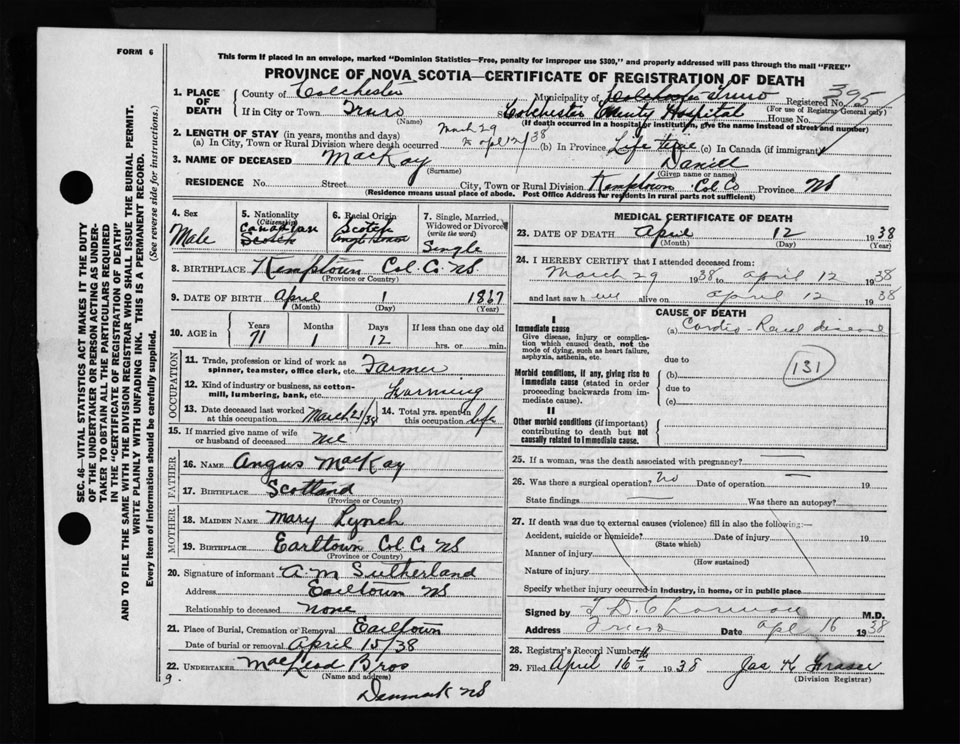 FORM 6
This form if placed in an envelope, marked "Dominion Statistics—Free, penalty for improper use $300," and properly addressed will pass through the mail "FREE"
PROVINCE OF NOVA SCOTIA—CERTIFICATE OF REGISTRATION OF DEATH
1. PLACE OF DEATH
County of Colchester Municipality of Colchester Truro Registered No. 395
(For use of Registrar General only)
If in City or Town Truro Colchester County Hospital House No.
(Name) (If death occurred in a hospital or institution, give the name instead of street and number)
2. LENGTH OF STAY (in years, months and days)
(a) In City, Town or Rural Division where death occurred March 29 to Apl 12/38 (b) In Province Life time (c) In Canada (if immigrant)
3. NAME OF DECEASED MacKay Daniel
(Surname) (Given name or names)
RESIDENCE No. Street City, Town or Rural Division Kemptown Col Co Province NS
(Residence means usual place of abode. Post Office Address for residents in rural parts not sufficient)
4. Sex Male
5. Nationality (Citizenship) Canadian Scotch
6. Racial Origin Scotch
7. Single, Married, Widowed or Divorced (write the word) Single
8. BIRTHPLACE Kemptown Col. Co. NS.
(Province or Country)
9. DATE OF BIRTH April 1 1867
(Month) (Day) (Year)
10. AGE in Years 71 Months 1 Days 12 If less than one day old hrs. or min.
OCCUPATION
11. Trade, profession or kind of work as spinner, teamster, office clerk, etc. Farmer
12. Kind of industry or business, as cotton-mill, lumbering, bank, etc. Farming
13. Date deceased last worked at this occupation March 21/38 14. Total yrs. spent in this occupation Life
15. If married give name of wife or husband of deceased
FATHER
16. NAME Angus MacKay
17. BIRTHPLACE Scotland
(Province or Country)
MOTHER
18. MAIDEN NAME Mary Lynch
19. BIRTHPLACE Earltown Col. Co NS
(Province or Country)
20. Signature of informant A. M Sutherland
Address Earltown NS
Relationship to deceased none
21. Place of Burial, Cremation or Removal Earltown
Date of burial or removal April 15/38
22. UNDERTAKER MacLeod Bros
(Name and address)
Denmark NS
9.
MEDICAL CERTIFICATE OF DEATH
23. DATE OF DEATH April 12 1938
(Month) (Day) (Year)
24. I HEREBY CERTIFY that I attended deceased from:
March 29 1938 to April 12 1938
and last saw h im alive on April 12 1938
CAUSE OF DEATH
I
Immediate cause (a) Cardio-Renal disease
Give disease, injury or complication which caused death, not the mode of dying, such as heart failure, asphyxia, asthenia, etc.
due to
Morbid conditions, if any, giving rise to immediate cause (stated in order proceeding backwards from immediate cause).
(b)
due to
(c)
131
II
Other morbid conditions (if important) contributing to death but not causally related to immediate cause.
25. If a woman, was the death associated with pregnancy? —
26. Was there a surgical operation? No Date of operation — 19
State findings — Was there an autopsy? —
27. If death was due to external causes (violence) fill in also the following:—
Accident, suicide or homicide? Date of injury 19
(State which)
Manner of injury
(How sustained)
Nature of injury
Specify whether injury occurred in industry, in home, or in public place
Signed by M.D.
Address Truro Date Apl 16 1938
28. Registrar's Record Number
29. Filed April 16 1938 Jas K Fraser
(Division Registrar)
SEC. 46—VITAL STATISTICS ACT MAKES IT THE DUTY
OF THE UNDERTAKER OR PERSON ACTING AS UNDER-
TAKER TO OBTAIN ALL THE PARTICULARS REQUIRED
IN THE "CERTIFICATE OF REGISTRATION OF DEATH"
AND TO FILE THE SAME WITH THE DIVISION REGISTRAR WHO SHALL ISSUE THE BURIAL PERMIT.
WRITE PLAINLY WITH UNFADING INK. THIS IS A PERMANENT RECORD.
Every item of information should be carefully supplied. (See reverse side for instructions.)